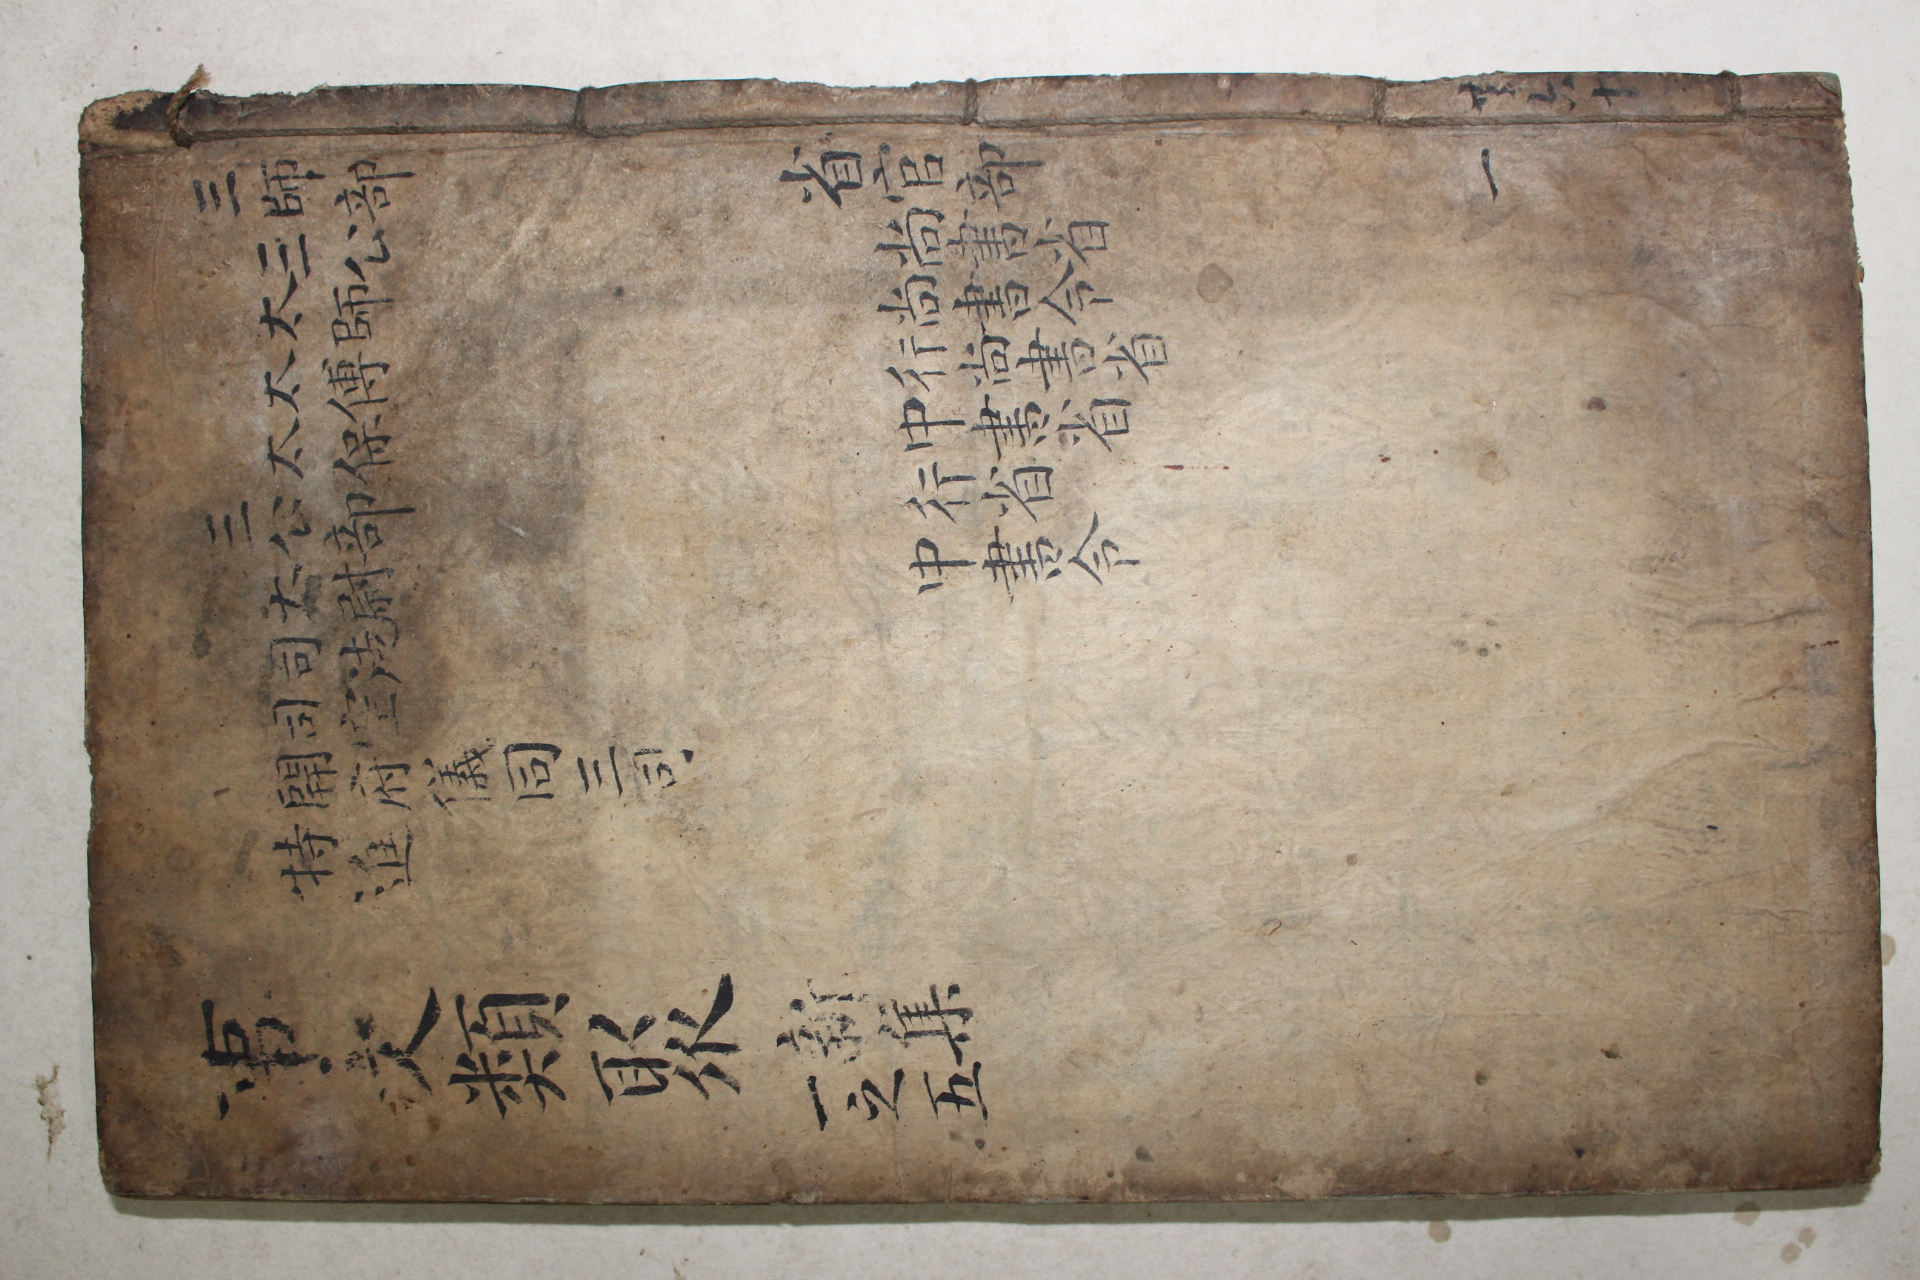 三師部
三公
太師
太傅
太保
三公部
太尉
司徒
司空
開府儀同三司
特進
省官部
尚書省
尚書令
行尚書省
中書省
行省
中書令
一
事文類聚
新集
一之五